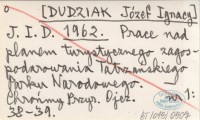 [DUDZIAK Józef Ignacy]
J. I. D. 1962. Prace nad
planem turystycznego zagos-
podarowania Tatrzańskiego
Parku Narodowego.
Chrońmy Przyr. Ojcz. nr 1:
38-39.